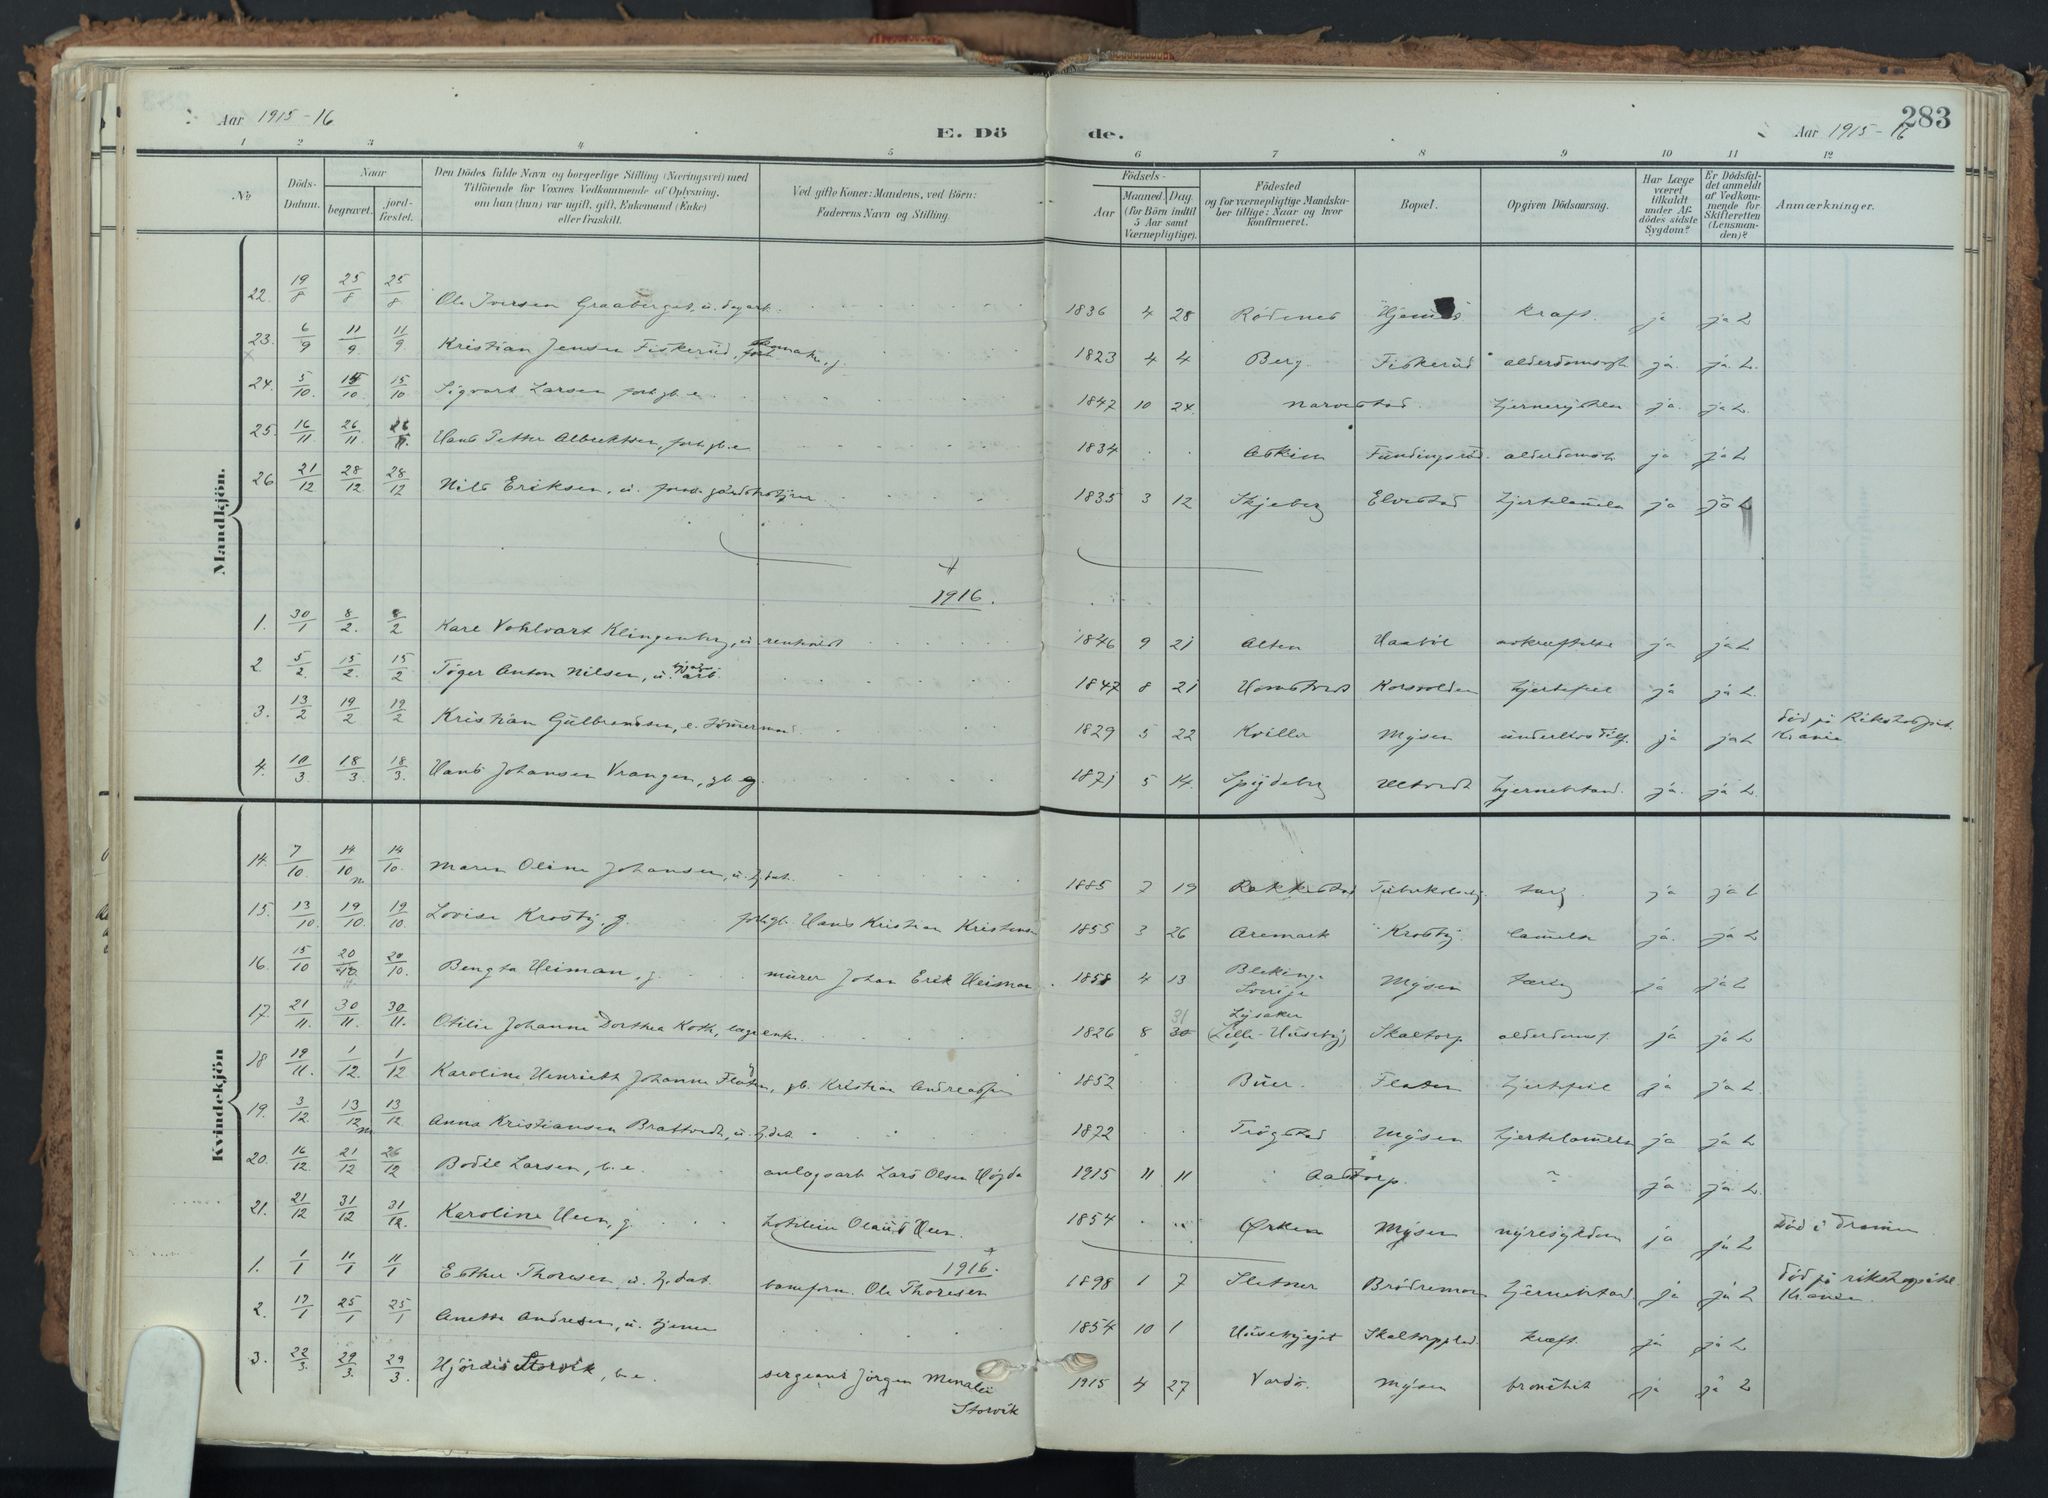 Aar 1915-16
E. Dö
de.
Aar 1915-16
283
1 2 3 4 5 6 7 8 9 10 11 12
No
Döds-Datum.
Naar
begravet.
jord-fæstet.
Den Dödes fulde Navn og borgerlige Stilling (Næringsvei) med
Tilföiende for Voxnes Vedkommende af Oplysning,
om han (hun) var ugift, gift, Enkemand (Enke)
eller fraskilt.
Ved gifte Koner: Mandens, ved Börn:
Faderens Navn og Stilling.
Födsels-
Aar
Maaned. Dag.
(for Börn indtil
5 Aar samt
Værnepligtige).
Födested
og for værnepligtige Mandska-
ber tillige: Naar og hvor
Konfirmeret.
Bopæl.
Opgiven Dödsaarsag.
Har Læge
været
tilkaldt
under Af-
dödes sidste
Sygdom?
Er Dödsfal-
det anmeldt
af Vedkom-
mende for
Skifteretten
(Lensman-
den)?
Anmærkninger.
Mandkjön.
22. 19/8 25/8 25/8 Ole Iversen Graaberget, u. dagarb. 1836 4 28 Rödenes kraft. ja ja L
23. 6/9 11/9 11/9 Kristian Jensen Fiskerud, 1823 4 4 Berg Fiskerud ja. ja. L.
24. 5/10 15/10 15/10 Sigvart Larsen forh. gb. e. 1847 10 24 Narvestad. ja. ja L.
25. 16/11 26/11 26/11 Hans Petter Albrektsen, forh. gb. e 1834 Askim Fundingsrud. alderdomssv. ja ja L
26 21/12 28/12 28/12 Nils Eriksen, u. 1835 3 12 Skjeberg Elvestad hjertelamelse ja ja L
1916.
1. 30/1 8/2. 8/2 Kare Vohlvart Klingenberg, u. rentenist 1846 9 21 Alten Haaböl avkræftelse ja ja L
2. 5/2. 15/2. 15/2 Töger Anton Nilsen, u. arb. 1847 8 21 Korsvolden hjertefeil ja ja L.
3. 13/2 19/2 19/2 Kristian Gulbrandsen, e. tömmermand 1829 5 22 Kviller Mysen underlivstilf. ja ja L död på Rikshospit. Krania
4. 10/3 18/3. 18/3. Hans Johansen Vrangen, gb. eg. 1871 5 14. Spydeberg hjernebetænd. ja. ja L.
Kvindekjön
14. 7/10. 14/10 14/10. Maren Oline Johansen, u. tj. dat. 1885 7 19 Rakkestad Tuberkulosehj. tæring ja ja L
15. 13/10 19/10. 19/10. Lovise Krosby, g. forh. gb. Hans Kristian Kristensen 1855 3 26 Aremark Krosby. lamelse ja. ja L
16. 15/10 20/10 20/10. Bengta Heiman, g. murer Johan Erik Heiman 1858 4 13 Blekinge Sverige Mysen tæring ja ja L
17. 21/11. 30/11. 30/11. Otilie Johanne Dorthea Koth, lægeenke. 1826 8 31 Lysaker (Lille-Huseby) Skaltorp alderdomssv. ja ja L
18 19/11. 1/12. 1/12 Karoline Henriette Johanne Flaten, gb. Kristian Andreassen 1852 Buer. Flaten hjertefeil ja ja L
19. 3/12 13/12 13/12. Anna Kristiansen Brattvedt, u. tj. dat. 1872 Trögstad Mysen hjertelamelse ja ja L
20. 16/12. 21/12 26/12 Bodil Larsen, b. e. anlægsarb. Lars Olsen Højda 1915 11 11 Aastorp. ~ ja ja L.
21. 21/12 31/12 31/12. Karoline Heen, g. hoteleier Olaus Heen. 1854 Ørken Mysen nyresykdom ja ja L död i Drammen
1916.
1. 1/1 11/1 11/1 Esther Thoresen, u. tj. dat. banform. Ole Thoresen 1898 1 7 Sletner Brödremoen hjernebetænd. ja ja L död på rikshospital Krania.
2. 17/1 25/1 25/1 Anette Andresen, u. tjener 1854 10 1 Husebyeje Skaltorppladsen kræft. ja ja L
3. 22/3. 29/3. 29/3. Hjördis Storvik, b. e. sergeant Jörgen Menalii Storvik 1915 4 27 Vardö. Mysen bronchit ja ja L